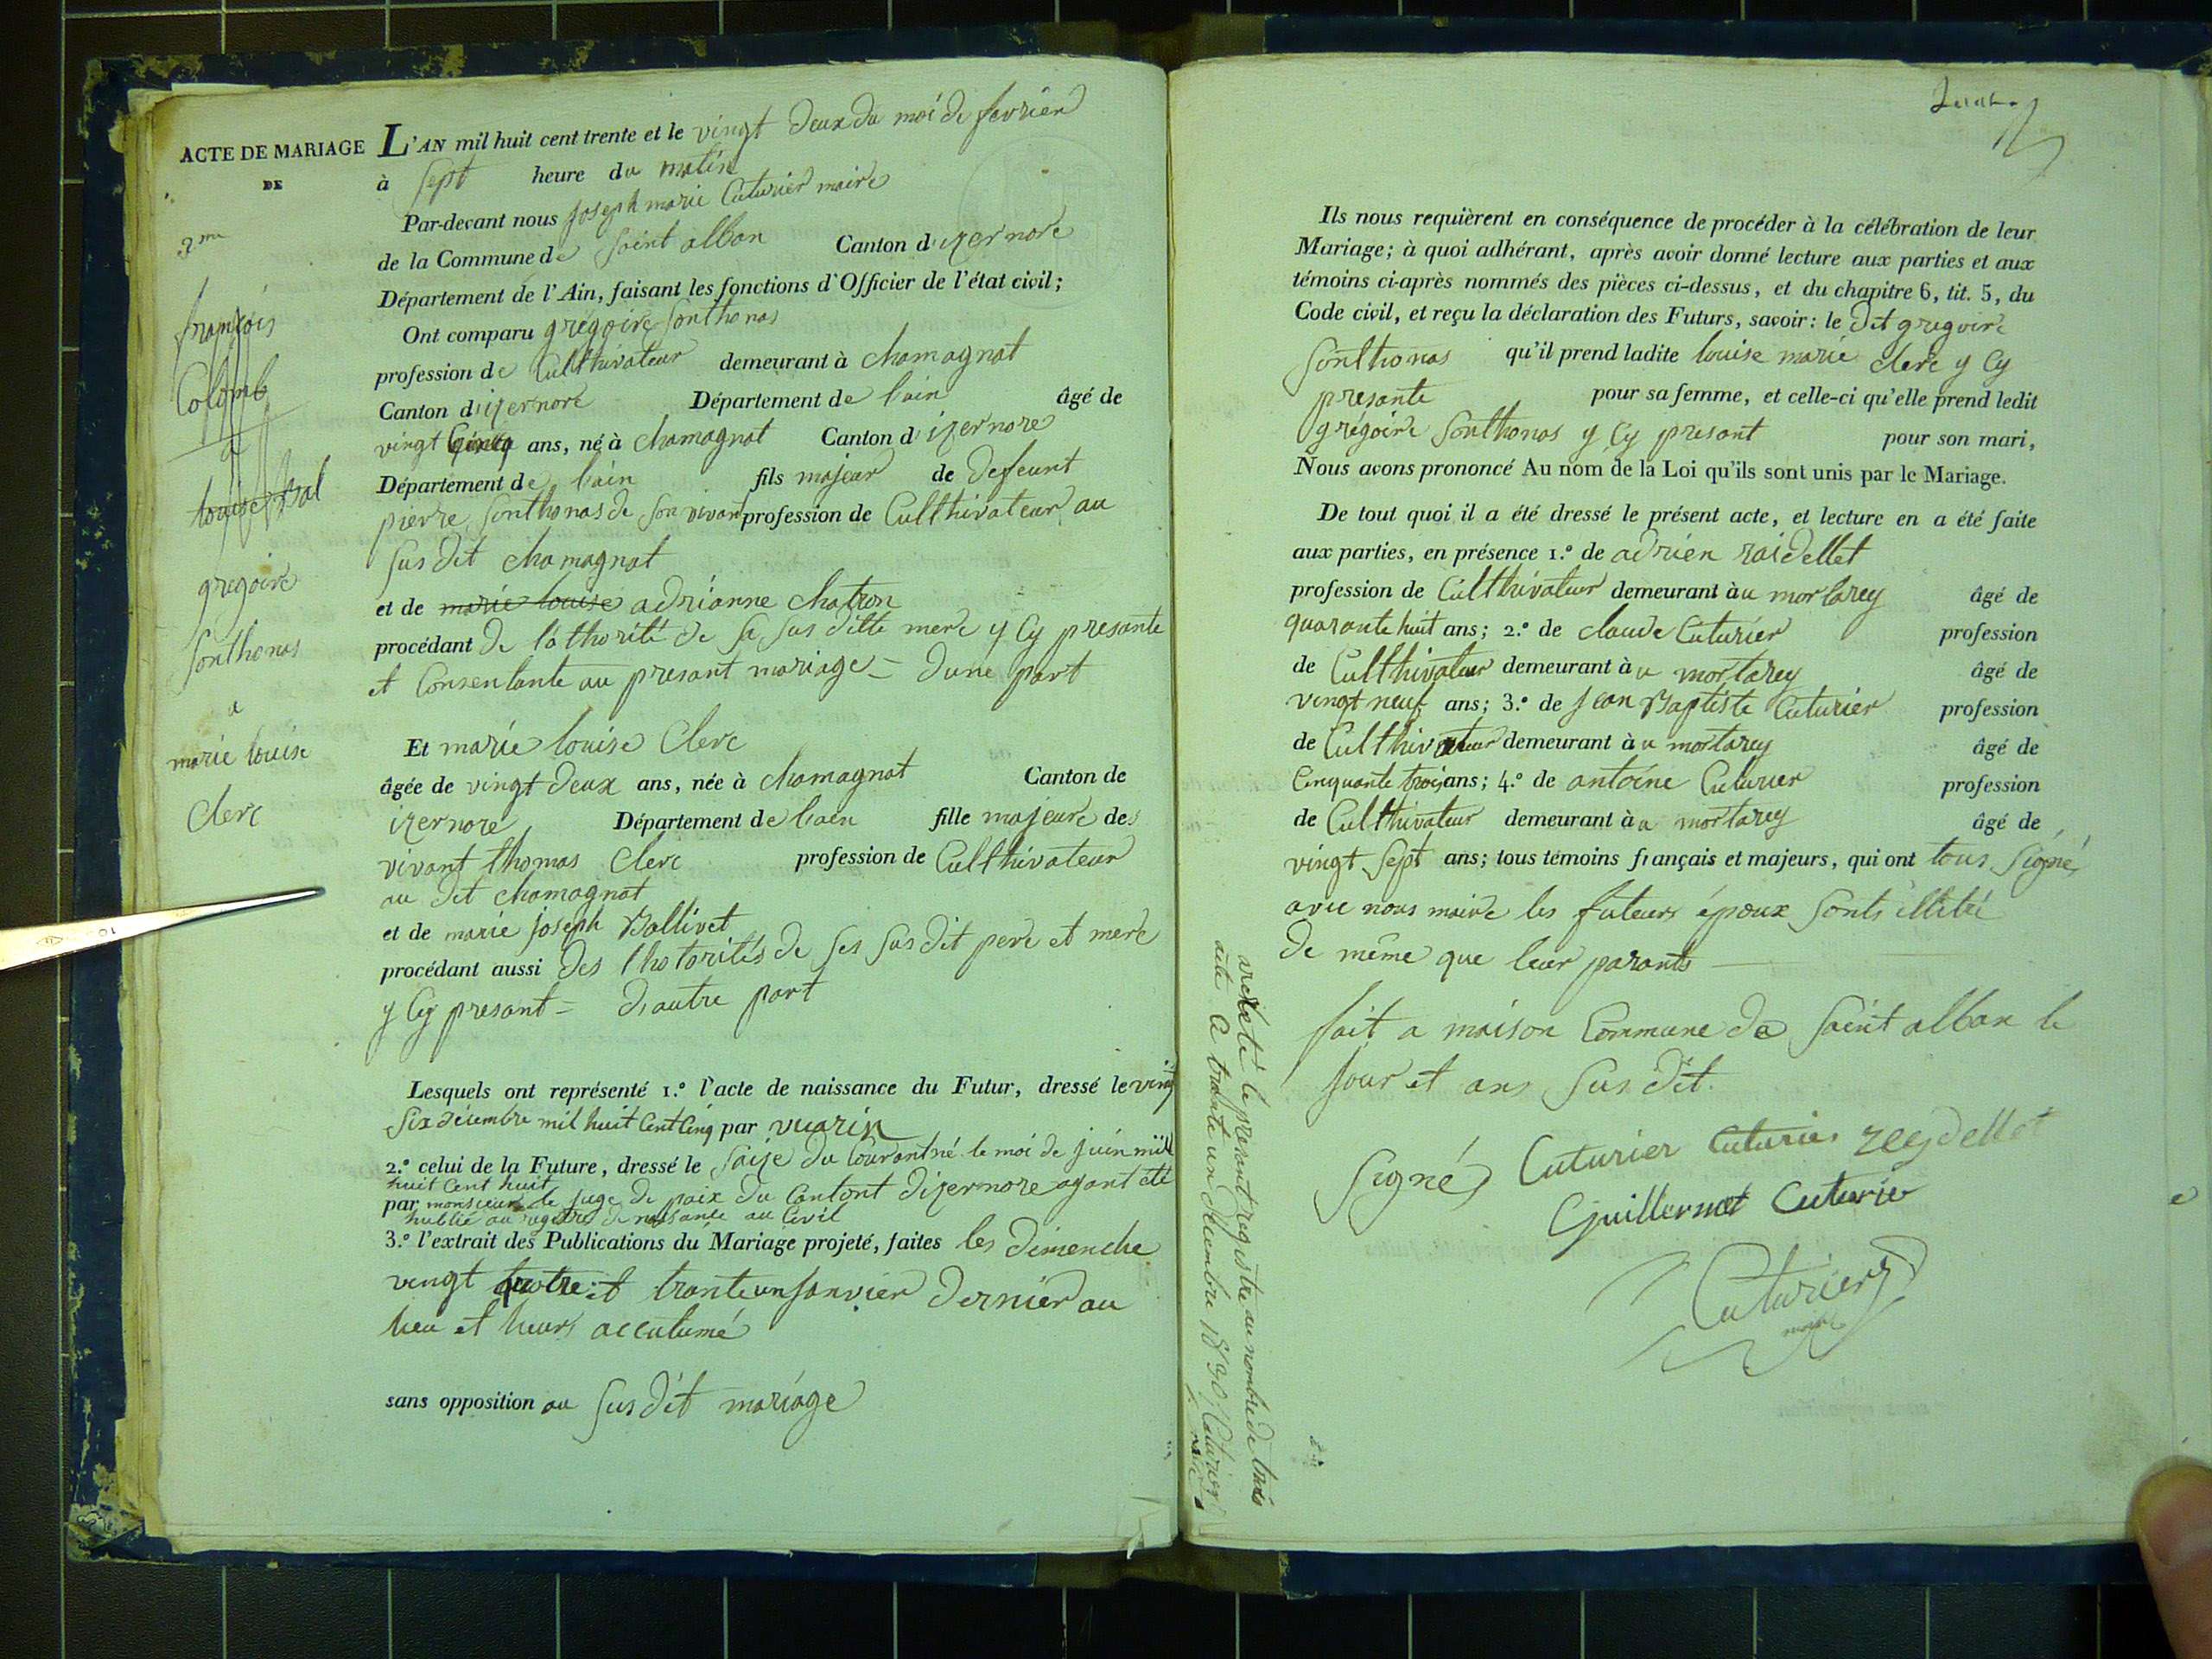 ACTE DE MARIAGE
DE
3me
françois
Colomb
a
louise Bal
gregoire
Sonthonas
a
marie louise
Clerc
L'AN mil huit cent trente et le vingt deux du moi de fevrier
à Sept heure du matin
Par-devant nous joseph marie Cuturier maire
de la Commune de Saint alban Canton d'izernore
Département de l'Ain, faisant les fonctions d'Officier de l'état civil;
Ont comparu grégoire Sonthonas
profession de Culthivateur demeurant à chamagnat
Canton d'izernore Département de l'ain âgé de
vingt Cinq ans, né à chamagnat Canton d'izernore
Département de l'ain fils majeur de defeunt
pierre Sonthonas de Son vivant profession de Culthivateur au
Sus dit chamagnat
et de marie louise adrianne chatron
procédant de l'athorité de Sa Sus ditte mere y Cy presante
et Consentante au presant mariage = dune part
Et marie louise Clerc
âgée de vingt deux ans, née à chamagnat Canton de
izernore Département de l'ain fille majeure des
vivant thomas Clerc profession de Culthivateur
au dit chamagnat
et de marie joseph Ballivet
procédant aussi des l'hotorités de Ses Sus dit pere et mere
y Cy presant = d'autre part
Lesquels ont représenté 1.º l'acte de naissance du Futur, dressé le vingt
Six décembre mil huit Cent Cinq par vuarin
2.º celui de la Future, dressé le Saize du Courant né le moi de juin mill
huit Cent huit
par monsieur le juge de paix du Cantont d'izernore ayant été
hublié au registre de naissance au Civil
3.º l'extrait des Publications du Mariage projeté, faites les dimenche
vingt quatre et trante un Janvier dernier au
lieu et heurs accutumé
sans opposition au Sus dit mariage
Ils nous requièrent en conséquence de procéder à la célébration de leur
Mariage; à quoi adhérant, après avoir donné lecture aux parties et aux
témoins ci-après nommés des pièces ci-dessus, et du chapitre 6, tit. 5, du
Code civil, et reçu la déclaration des Futurs, savoir: le dit gregoire
Sonthonas qu'il prend ladite louise marie clerc y Cy
presante pour sa femme, et celle-ci qu'elle prend ledit
grégoire Sonthonas y Cy presant pour son mari,
Nous avons prononcé Au nom de la Loi qu'ils sont unis par le Mariage.
De tout quoi il a été dressé le présent acte, et lecture en a été faite
aux parties, en présence 1.º de adrien raidellet
profession de Culthivateur demeurant àu mortarey âgé de
quarante huit ans; 2.º de claude Cuturier profession
de Culthivateur demeurant àu mortarey âgé de
vingt neuf ans; 3.º de Jean Baptiste Cuturier profession
de Culthivateur demeurant àu mortarey âgé de
Cinquante trois ans; 4.º de antoine Cuturier profession
de Culthivateur demeurant àu mortarey âgé de
vingt Sept ans; tous témoins français et majeurs, qui ont tous Signé
avec nous maire les futeurs époux Sonts illitré
de même que leur parants
fait a maison Commune de Saint alban le
Jour et ans Sus dit.
Signé Cuturier Cuturier reydellet
Guillermet Cuturie
Cuturier
maire
areteté le presant registre au nombre de trois
acte Ce trante un décembre 1830 Cuturier
maire